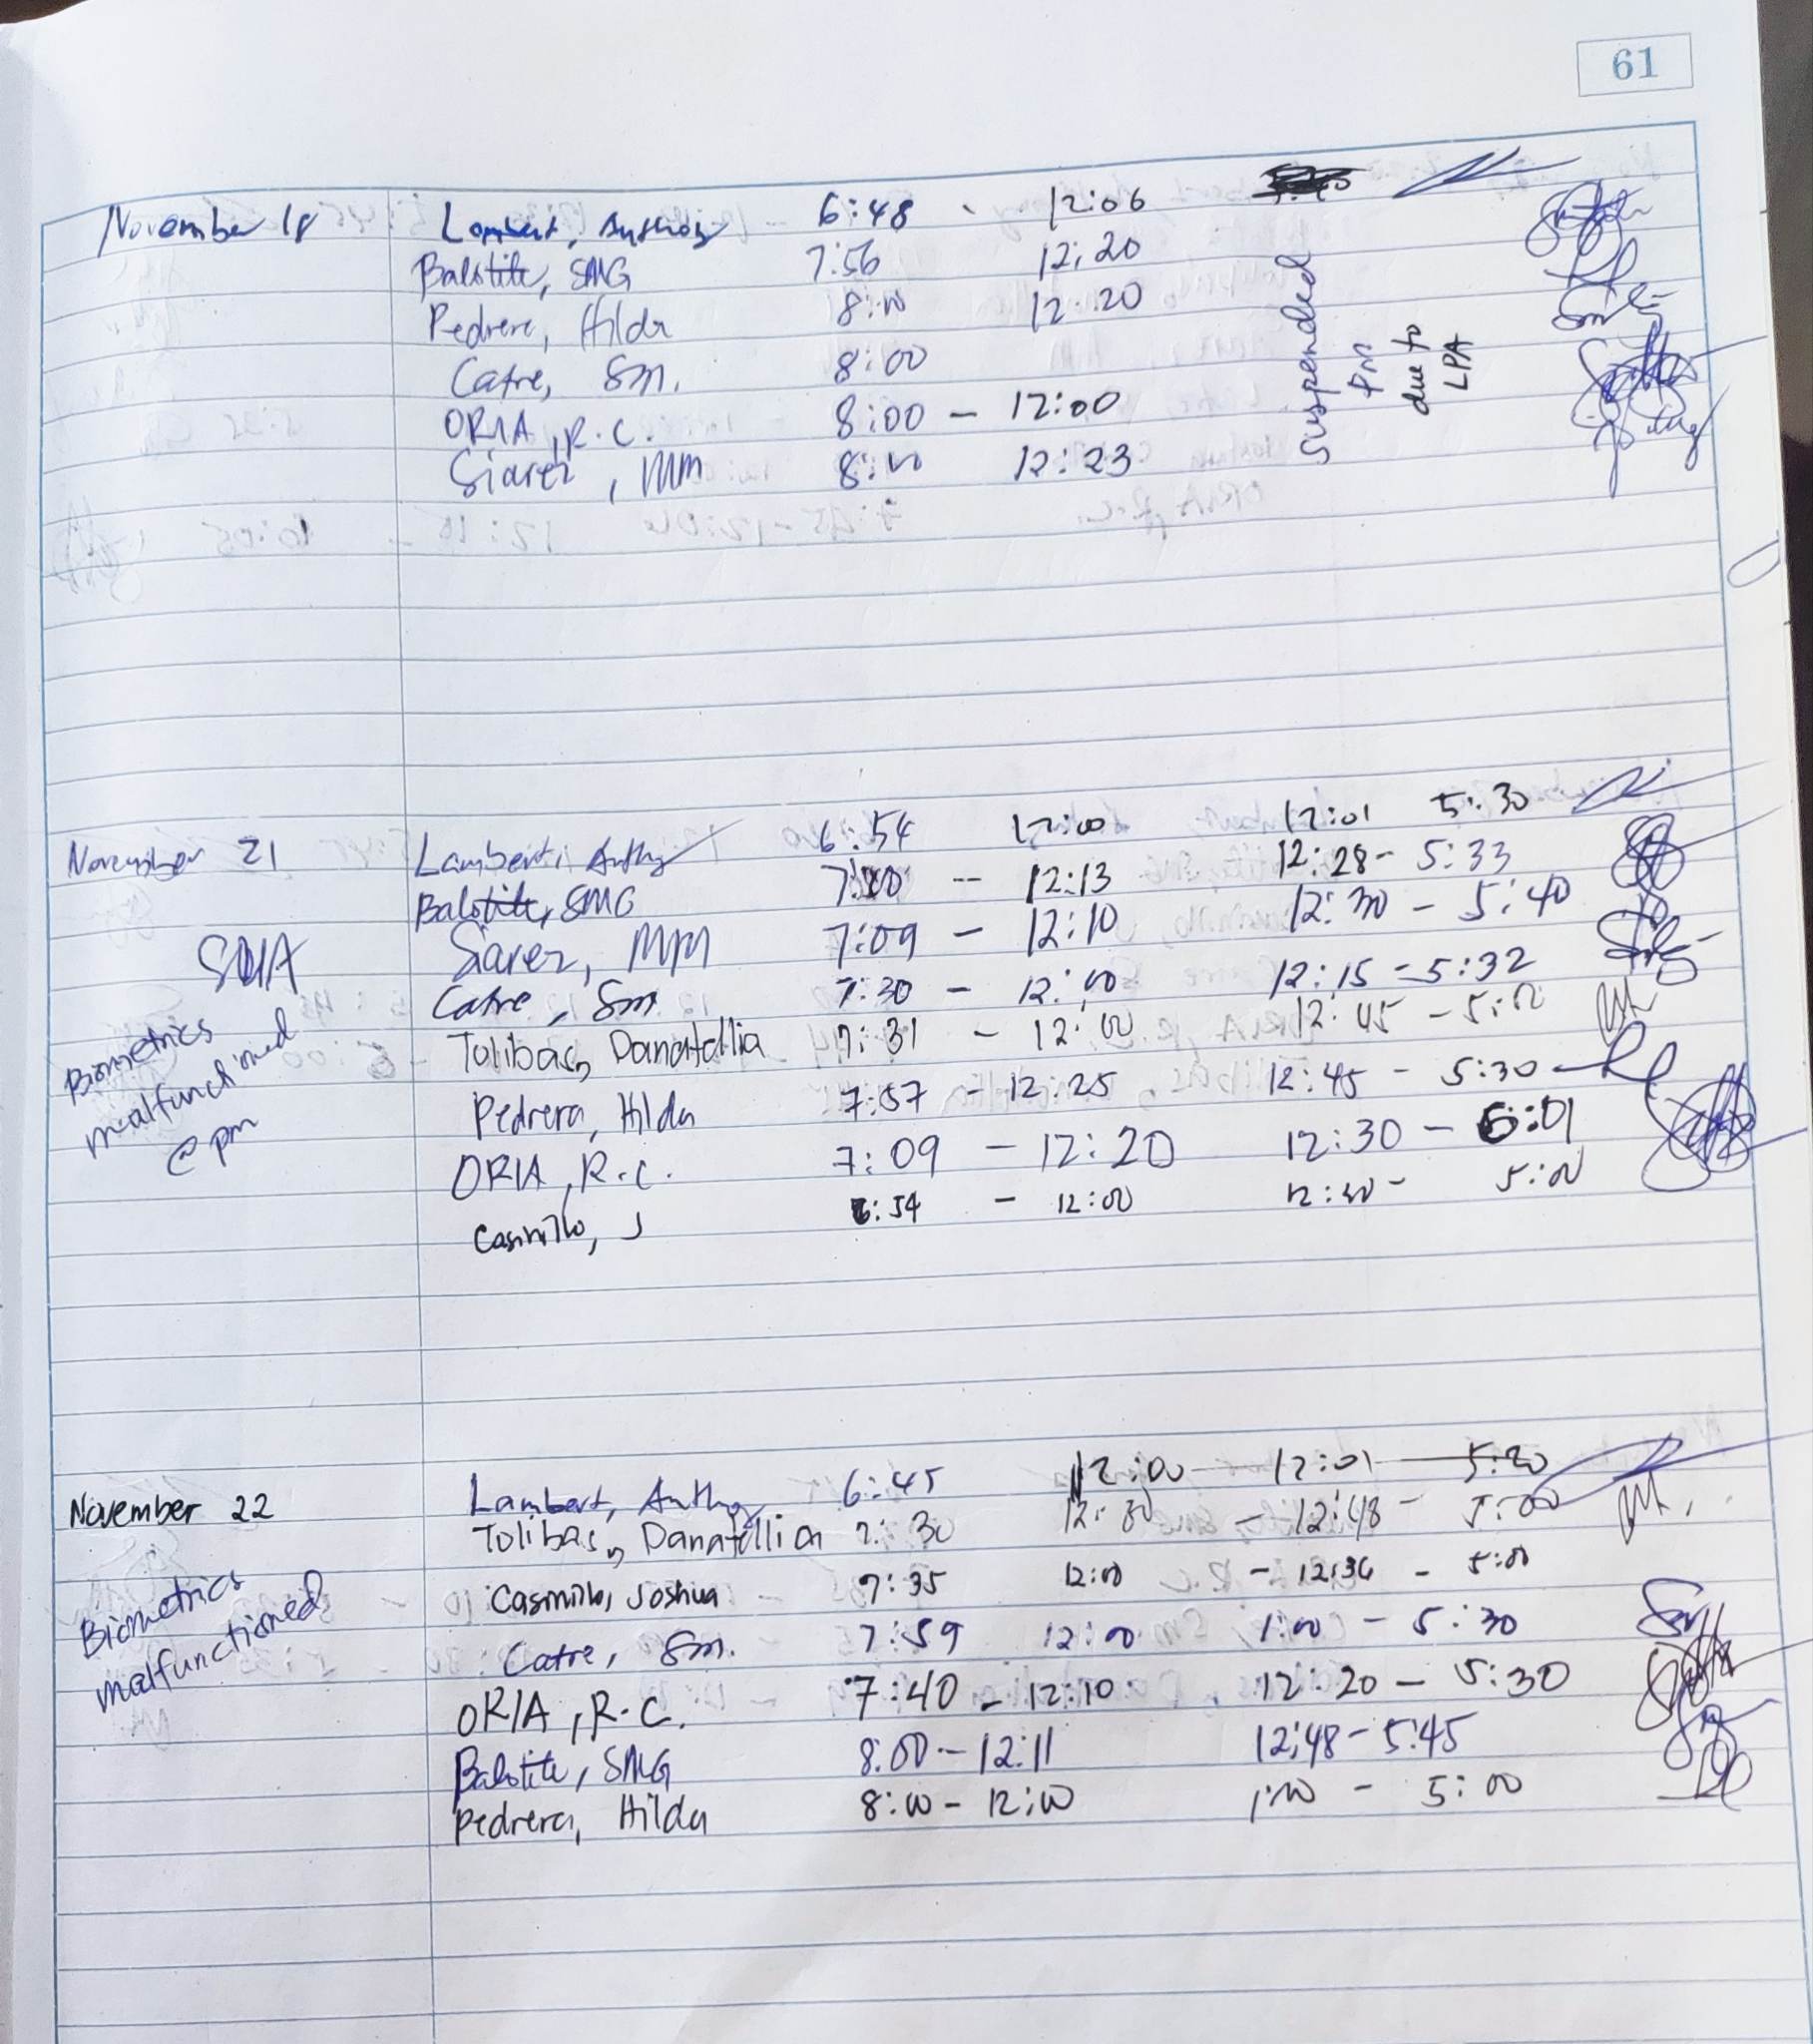 61
November 18 Lambert, Anthony 6:48 - 12:06
Balotite, SMG 7:56 12:20
Pedrera, Hilda 8:00 12:20
Catre, Sm. 8:00
ORIA, R.C. 8:00 - 12:00
Siarez, MM 8:00 12:23
Suspended
PM
due to
LPA
November 21 Lambert, Anthy 6:54 12:00 12:01 5:30
Balotite, SMG -- 12:13 12:28 - 5:33
Siarez, MM 7:09 - 12:10 12:30 - 5:40
Catre, Sm 7:30 - 12:00 12:15 - 5:32
Tolibas, Danatellia 7:31 - 12:00 12:45 - 5:00
Pedrera, Hilda 7:57 - 12:25 12:45 - 5:30
ORIA, R.C. 7:09 - 12:20 12:30 - 6:01
Casmillo, J 6:54 - 12:00 12:30 - 5:00
Biometrics
malfunctioned
@ pm
November 22 Lambert, Anthy 6:45 12:00 - 12:01 - 5:30
Tolibas, Danatellia 7:30 12:30 - 12:48 - 5:00
Casmillo, Joshua 7:35 12:00 - 12:36 - 5:00
Catre, Sm. 7:59 12:00 1:00 - 5:30
ORIA, R.C. 7:40 - 12:10 12:20 - 5:30
Balotite, SMG 8:00 - 12:11 12:48 - 5:45
Pedrera, Hilda 8:00 - 12:00 1:00 - 5:00
Biometrics
malfunctioned